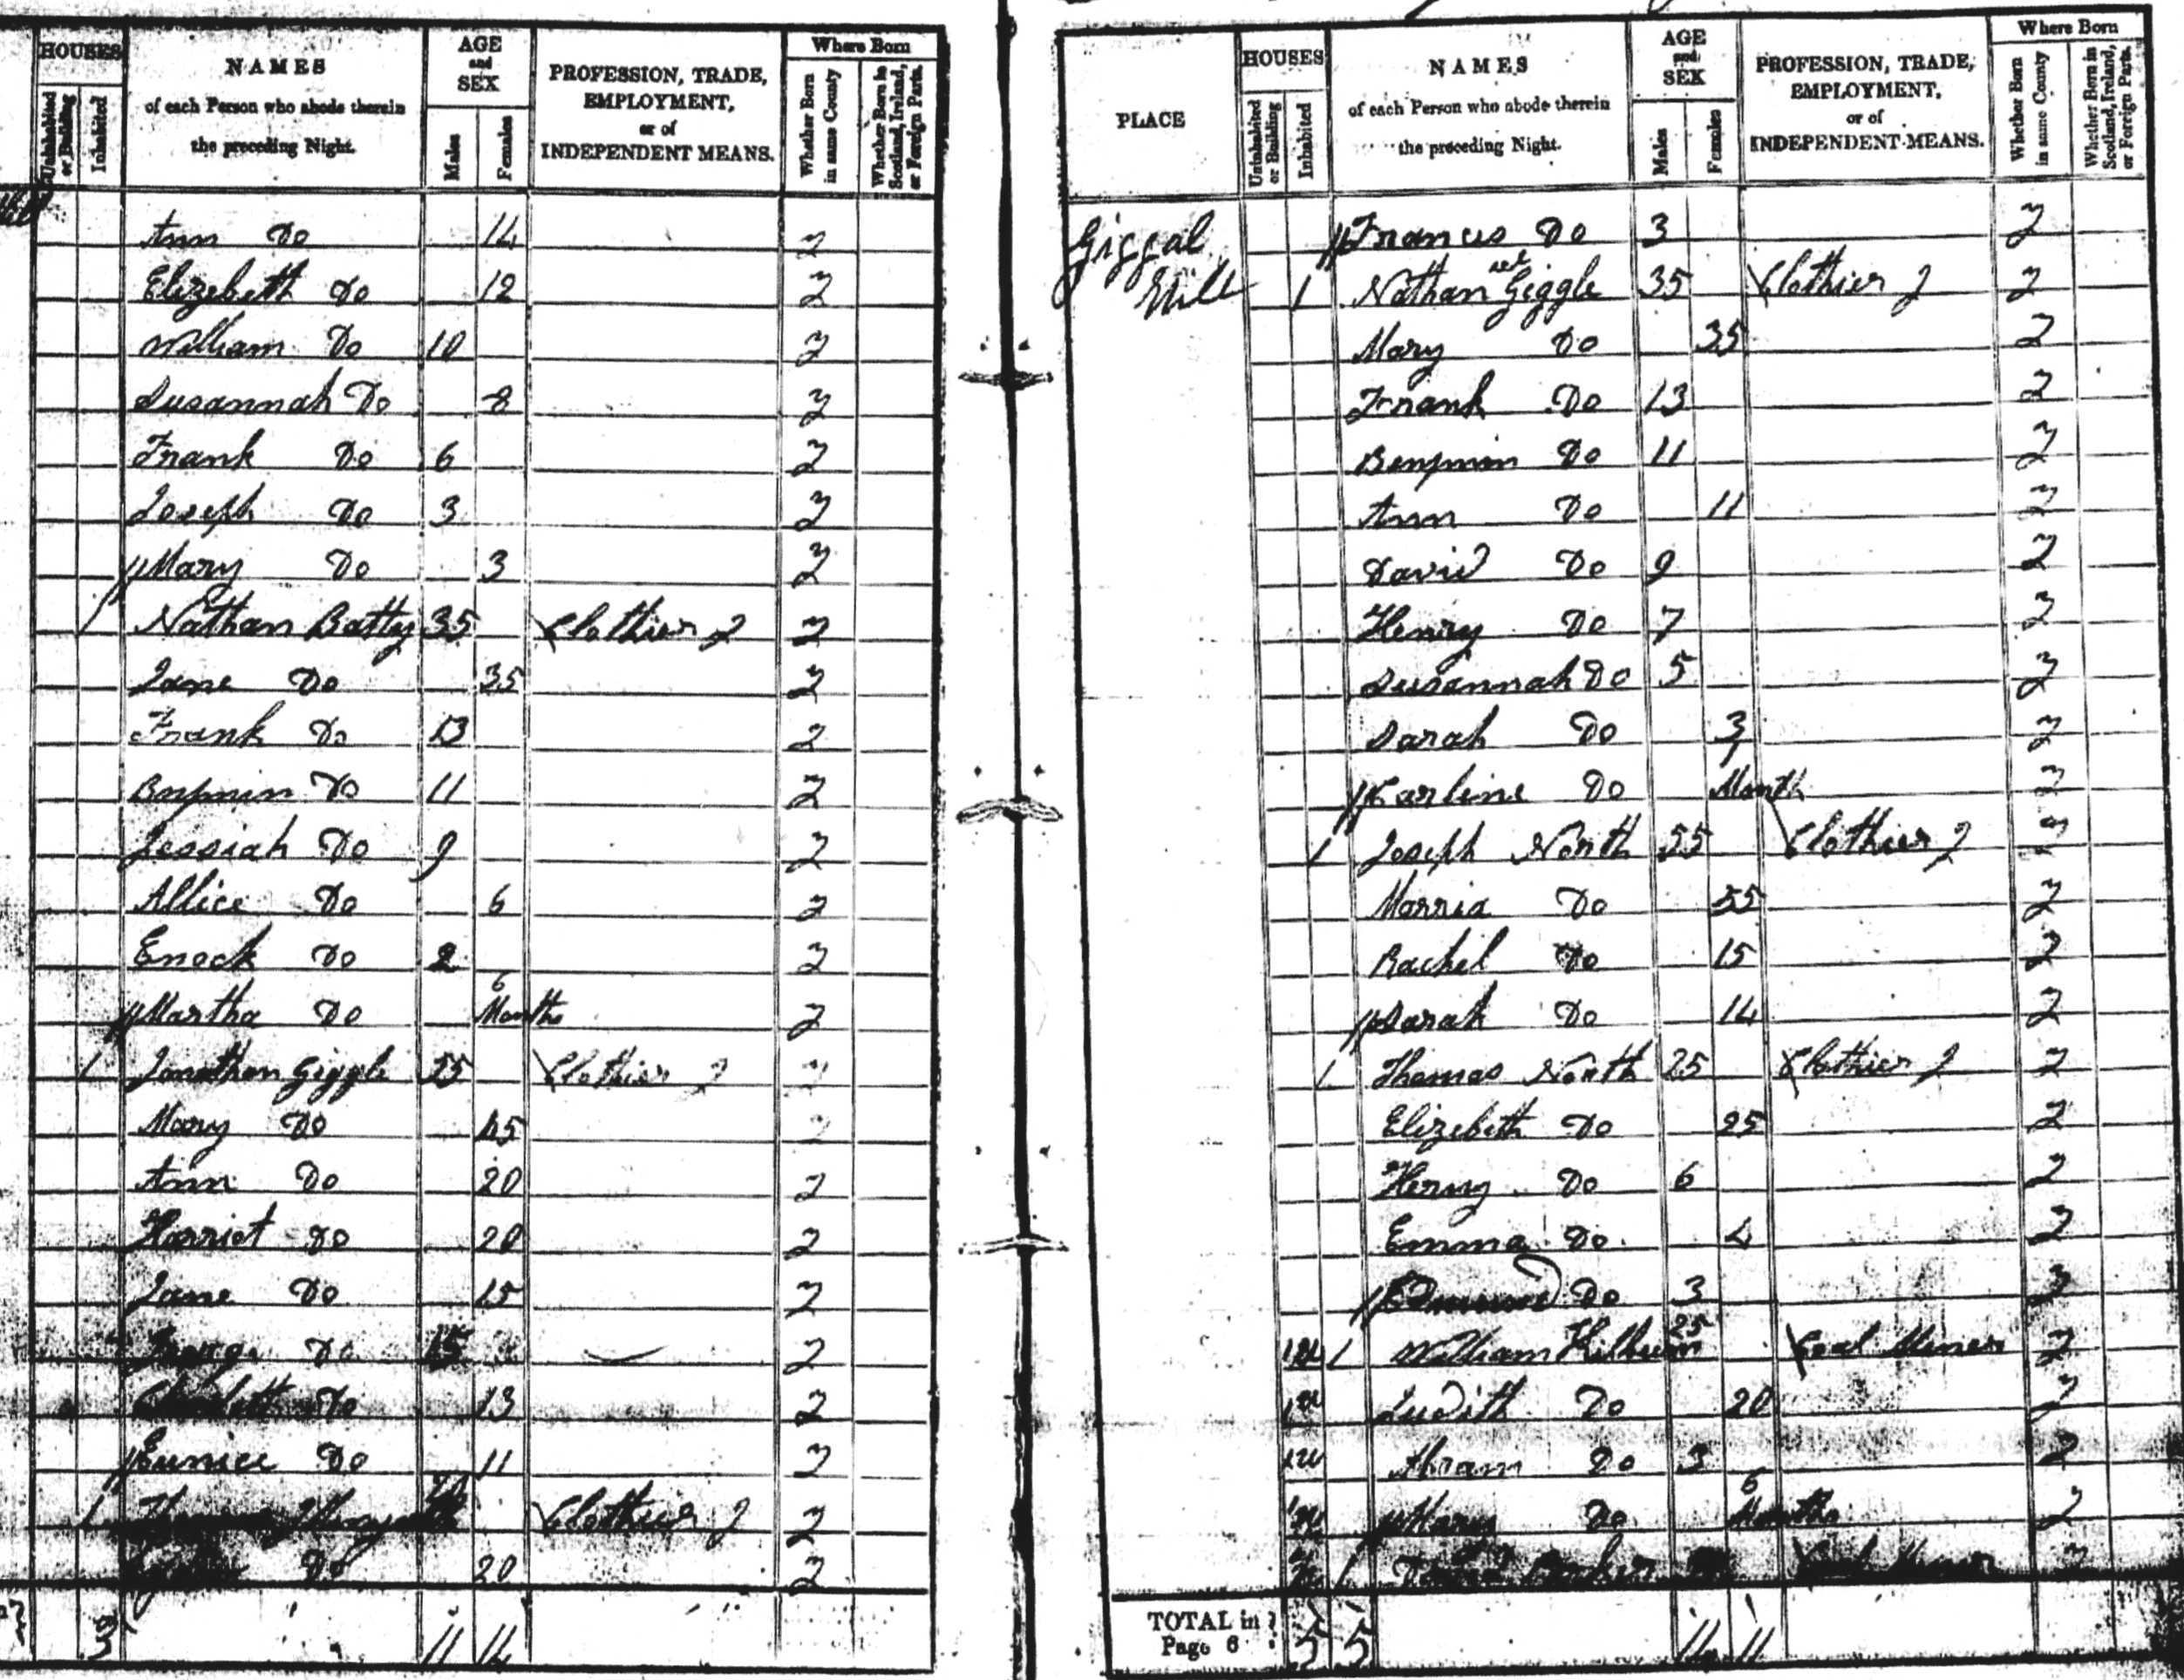 HOUSES
Uninhabited or Building
Inhabited
NAMES
of each Person who abode therein
the preceding Night.
AGE
and
SEX
Males
Females
PROFESSION, TRADE,
EMPLOYMENT,
or of
INDEPENDENT MEANS.
Where Born
Whether Born in same County
Whether Born in Scotland, Ireland, or Foreign Parts.
Ann Do 14
Elizebeth Do 12
William Do 10
Susannah Do 8
Frank Do 6
Joseph Do 3
Mary Do 3
1 Nathan Batty 35 Clothier J
Jane Do 35
Frank Do 13
Benjmin Do 11
Jessiah Do 9
Allice Do 6
Enock Do 2
Martha Do 6 Months
1 Jonathan Giggle Clothier J
Mary Do 45
Ann Do 20
Harriet Do 20
Jane Do 15
George Do 15
Do 13
Eunice Do 11
1 Clothier J
Do 20
11 14
PLACE
HOUSES
Uninhabited or Building
Inhabited
NAMES
of each Person who abode therein
the preceding Night.
AGE
and
SEX
Males
Females
PROFESSION, TRADE,
EMPLOYMENT,
or of
INDEPENDENT MEANS.
Where Born
Whether Born in same County
Whether Born in Scotland, Ireland, or Foreign Parts.
Giggal Frances Do 3
Mill 1 Nathan Giggle 35 Clothier J
Mary Do 35
Frank Do 13
Benjmin Do 11
Ann Do 11
David Do 9
Henry Do 7
Susannah Do 5
Sarah Do 3
Carline Do 1 Month
1 Joseph North 55 Clothier J
Marria Do 55
Rachel Do 15
Sarah Do 14
1 Thomas North 25 Clothier J
Elizebeth Do 25
Henry Do 6
Emma Do 4
Edmund Do 3
1 William Kilburn 25 Coal Miner
Judith Do 20
Abram Do 3
Mary Do 6 Months
1 Coal Miner
TOTAL in
Page 6 5 5 14 11